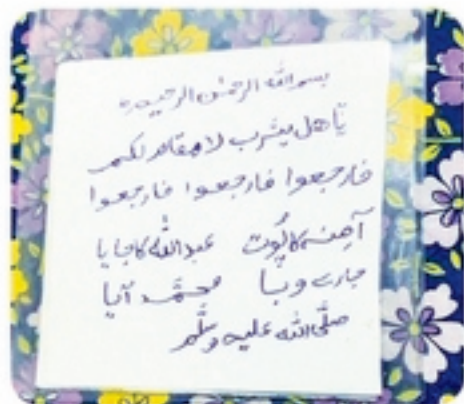 بسم الله الرحمٰن الرحیم ہ
یٰاھل یثرب لا مقام لکم
فارجعوا فارجعوا فارجعوا
آمِنہ کا پُوت عبداللہ کا جایا
جارے وبا محمَّد آیا
صلَّی اللہ علیہ وسلَّم